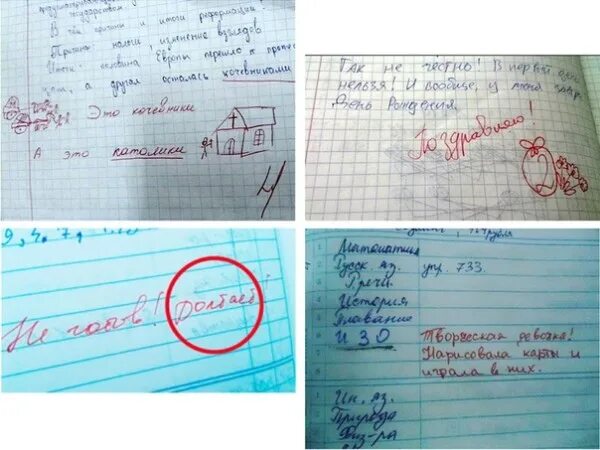 государством
В чём причины и итоги реформации?
Причина налоги, изменение взглядов
Итоги половина Европы перешло к
а другая осталась кочевниками
Это кочевники
А это католики
4
Так не честно! В первый день
нельзя! И вообще, у меня завтр
День Рождения
Поздравляю!
2
9, 4. 7,
Не готов! Долбаёб!
1 Математика
2 Русск. яз. упр. 733.
3 Речь
4 История
5 Плавание
6 ИЗО Творческая девочка!
Нарисовала карты и
играла в них.
Ин. яз.
Природа
Физ-ра